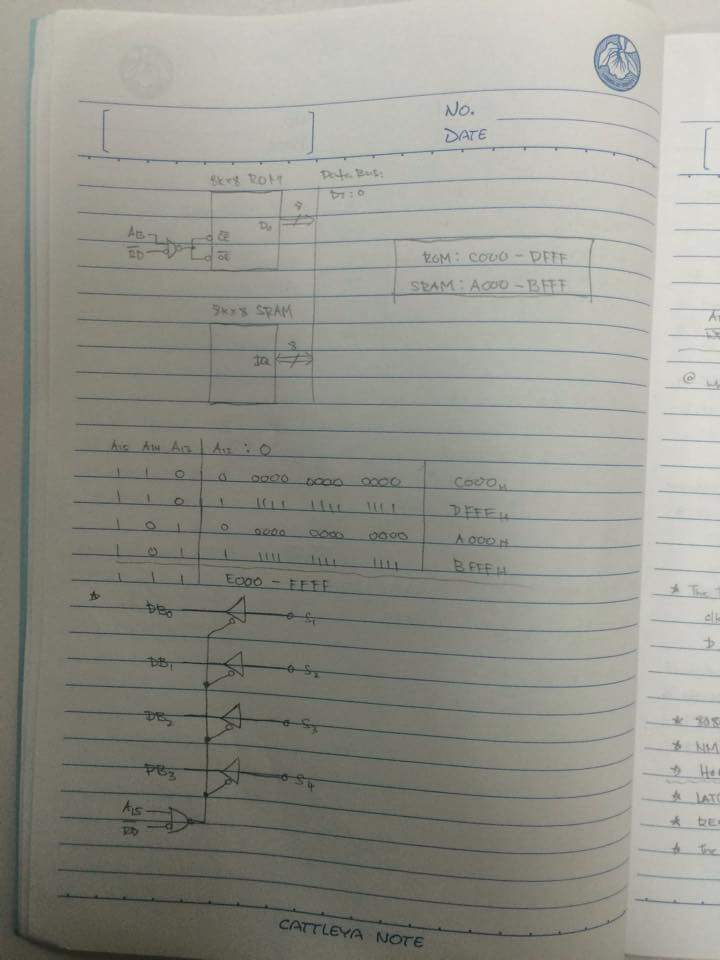 NO.
DATE
8k×8 ROM
Data Bus:
D7:0
8
D0
A13
CE
RD
OE
ROM: C000 - DFFF
SRAM: A000 - BFFF
8k×8 SRAM
8
A15 A14 A13 A12 : 0
1 1 0 0 0000 0000 0000 C000H
1 1 0 1 1111 1111 1111 DFFFH
1 0 1 0 0000 0000 0000 A000H
1 0 1 1 1111 1111 1111 BFFFH
1 1 1 E000 - FFFF
DB0 S1
DB1 S2
DB2 S3
DB3 S4
A15
RD
CATTLEYA NOTE
@
* The
* 808
* NM
* LATC
* The